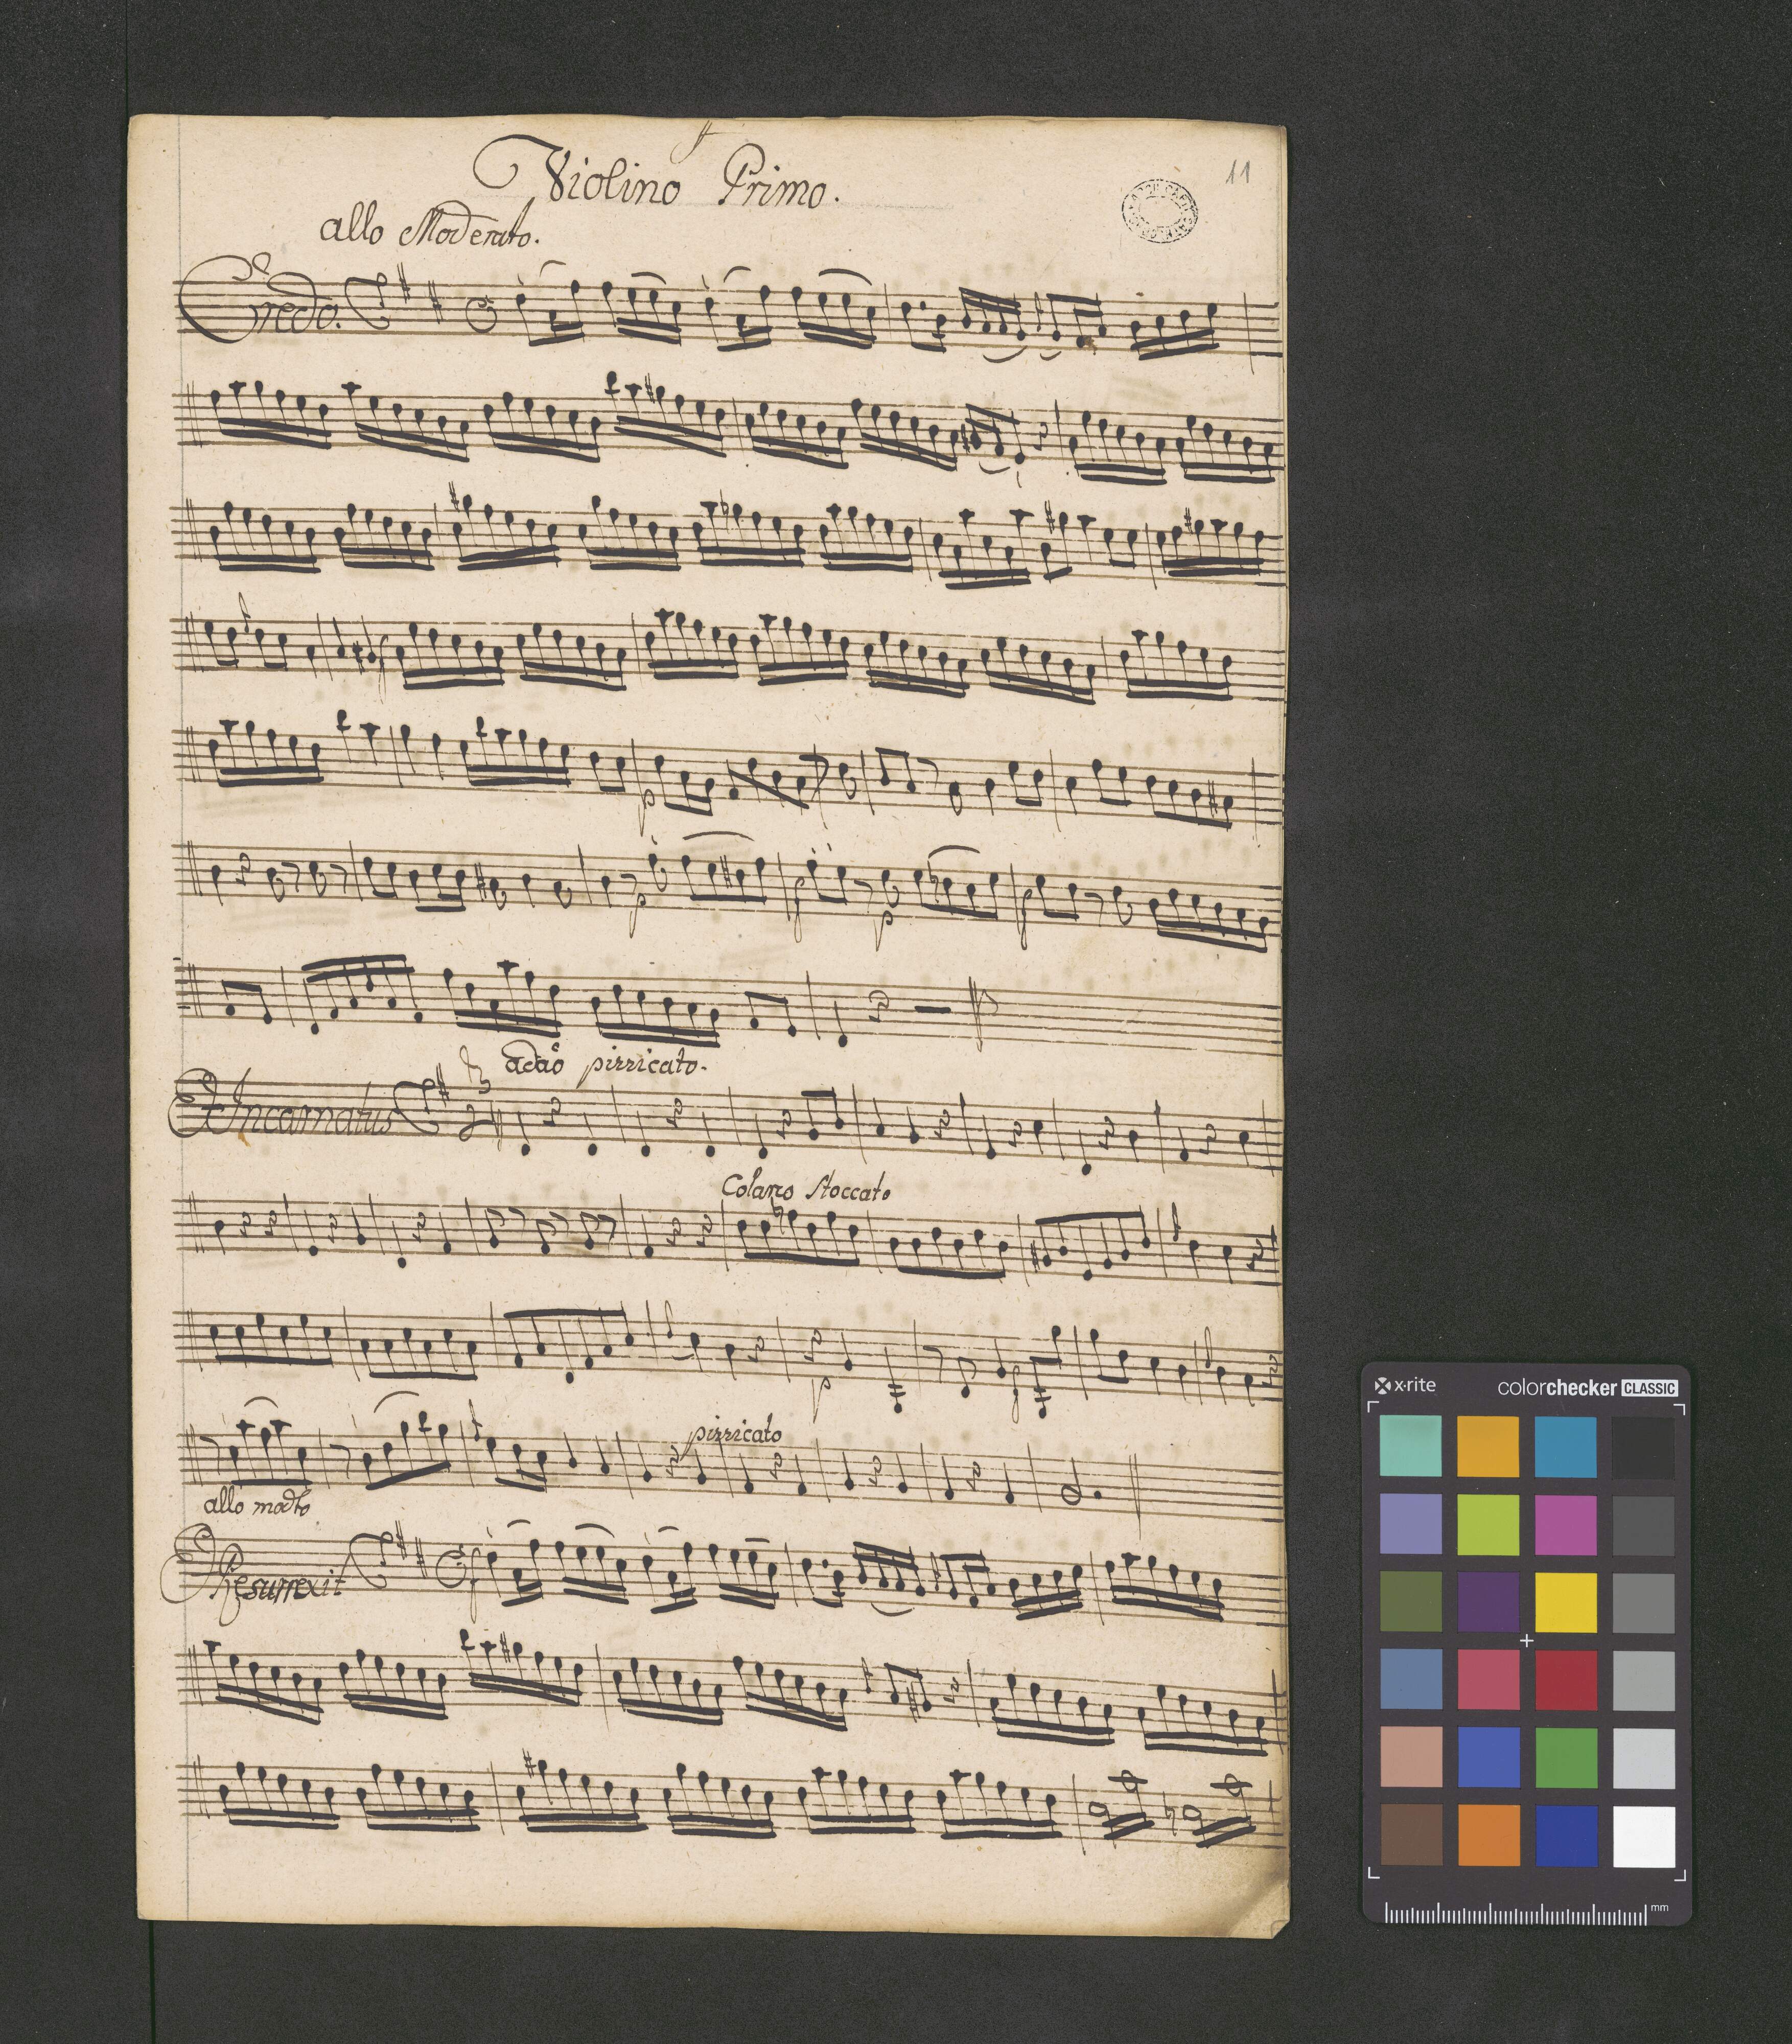 Violino Primo.
11
allo Moderato.
Credo.
p
p
p
adaõ pizzicato.
Et Incarnatus
3
2
Colarco Stoccato
p
pizzicato
allo modto
Et Resurrexit
x·rite
colorchecker CLASSIC
mm